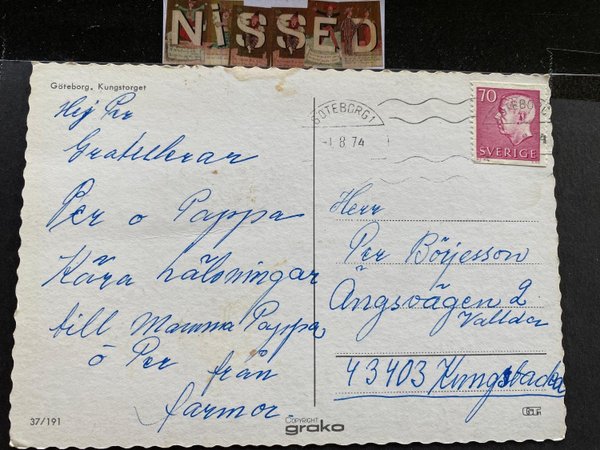 NiSSED
Göteborg. Kungstorget
Hej Per
Gratulerar
Per o Pappa
Kära hälsningar
till Mamma Pappa
o Per från
farmor.
37/191
COPYRIGHT
grako
GÖTEBORG 1
-1.8.74
70
SVERIGE
Herr
Per Börjesson
Ängsvägen 2
Vallda
43403 Kungsbacka